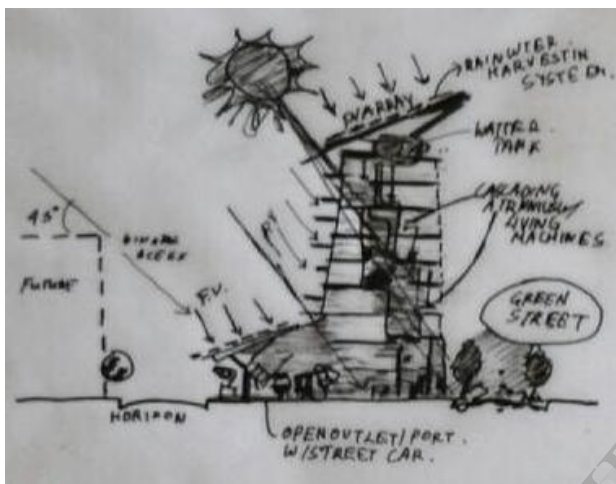 RAINWTER
HARVESTIN
SYSTEM.
PV ARRAY
WATTER
TANK
CASCADING
LIVING
MACHINES
45°
P.V.
FUTURE
P.V.
GREEN
STREET
HORIXON
OPEN OUTLET/PORT.
W/STREET CAR.